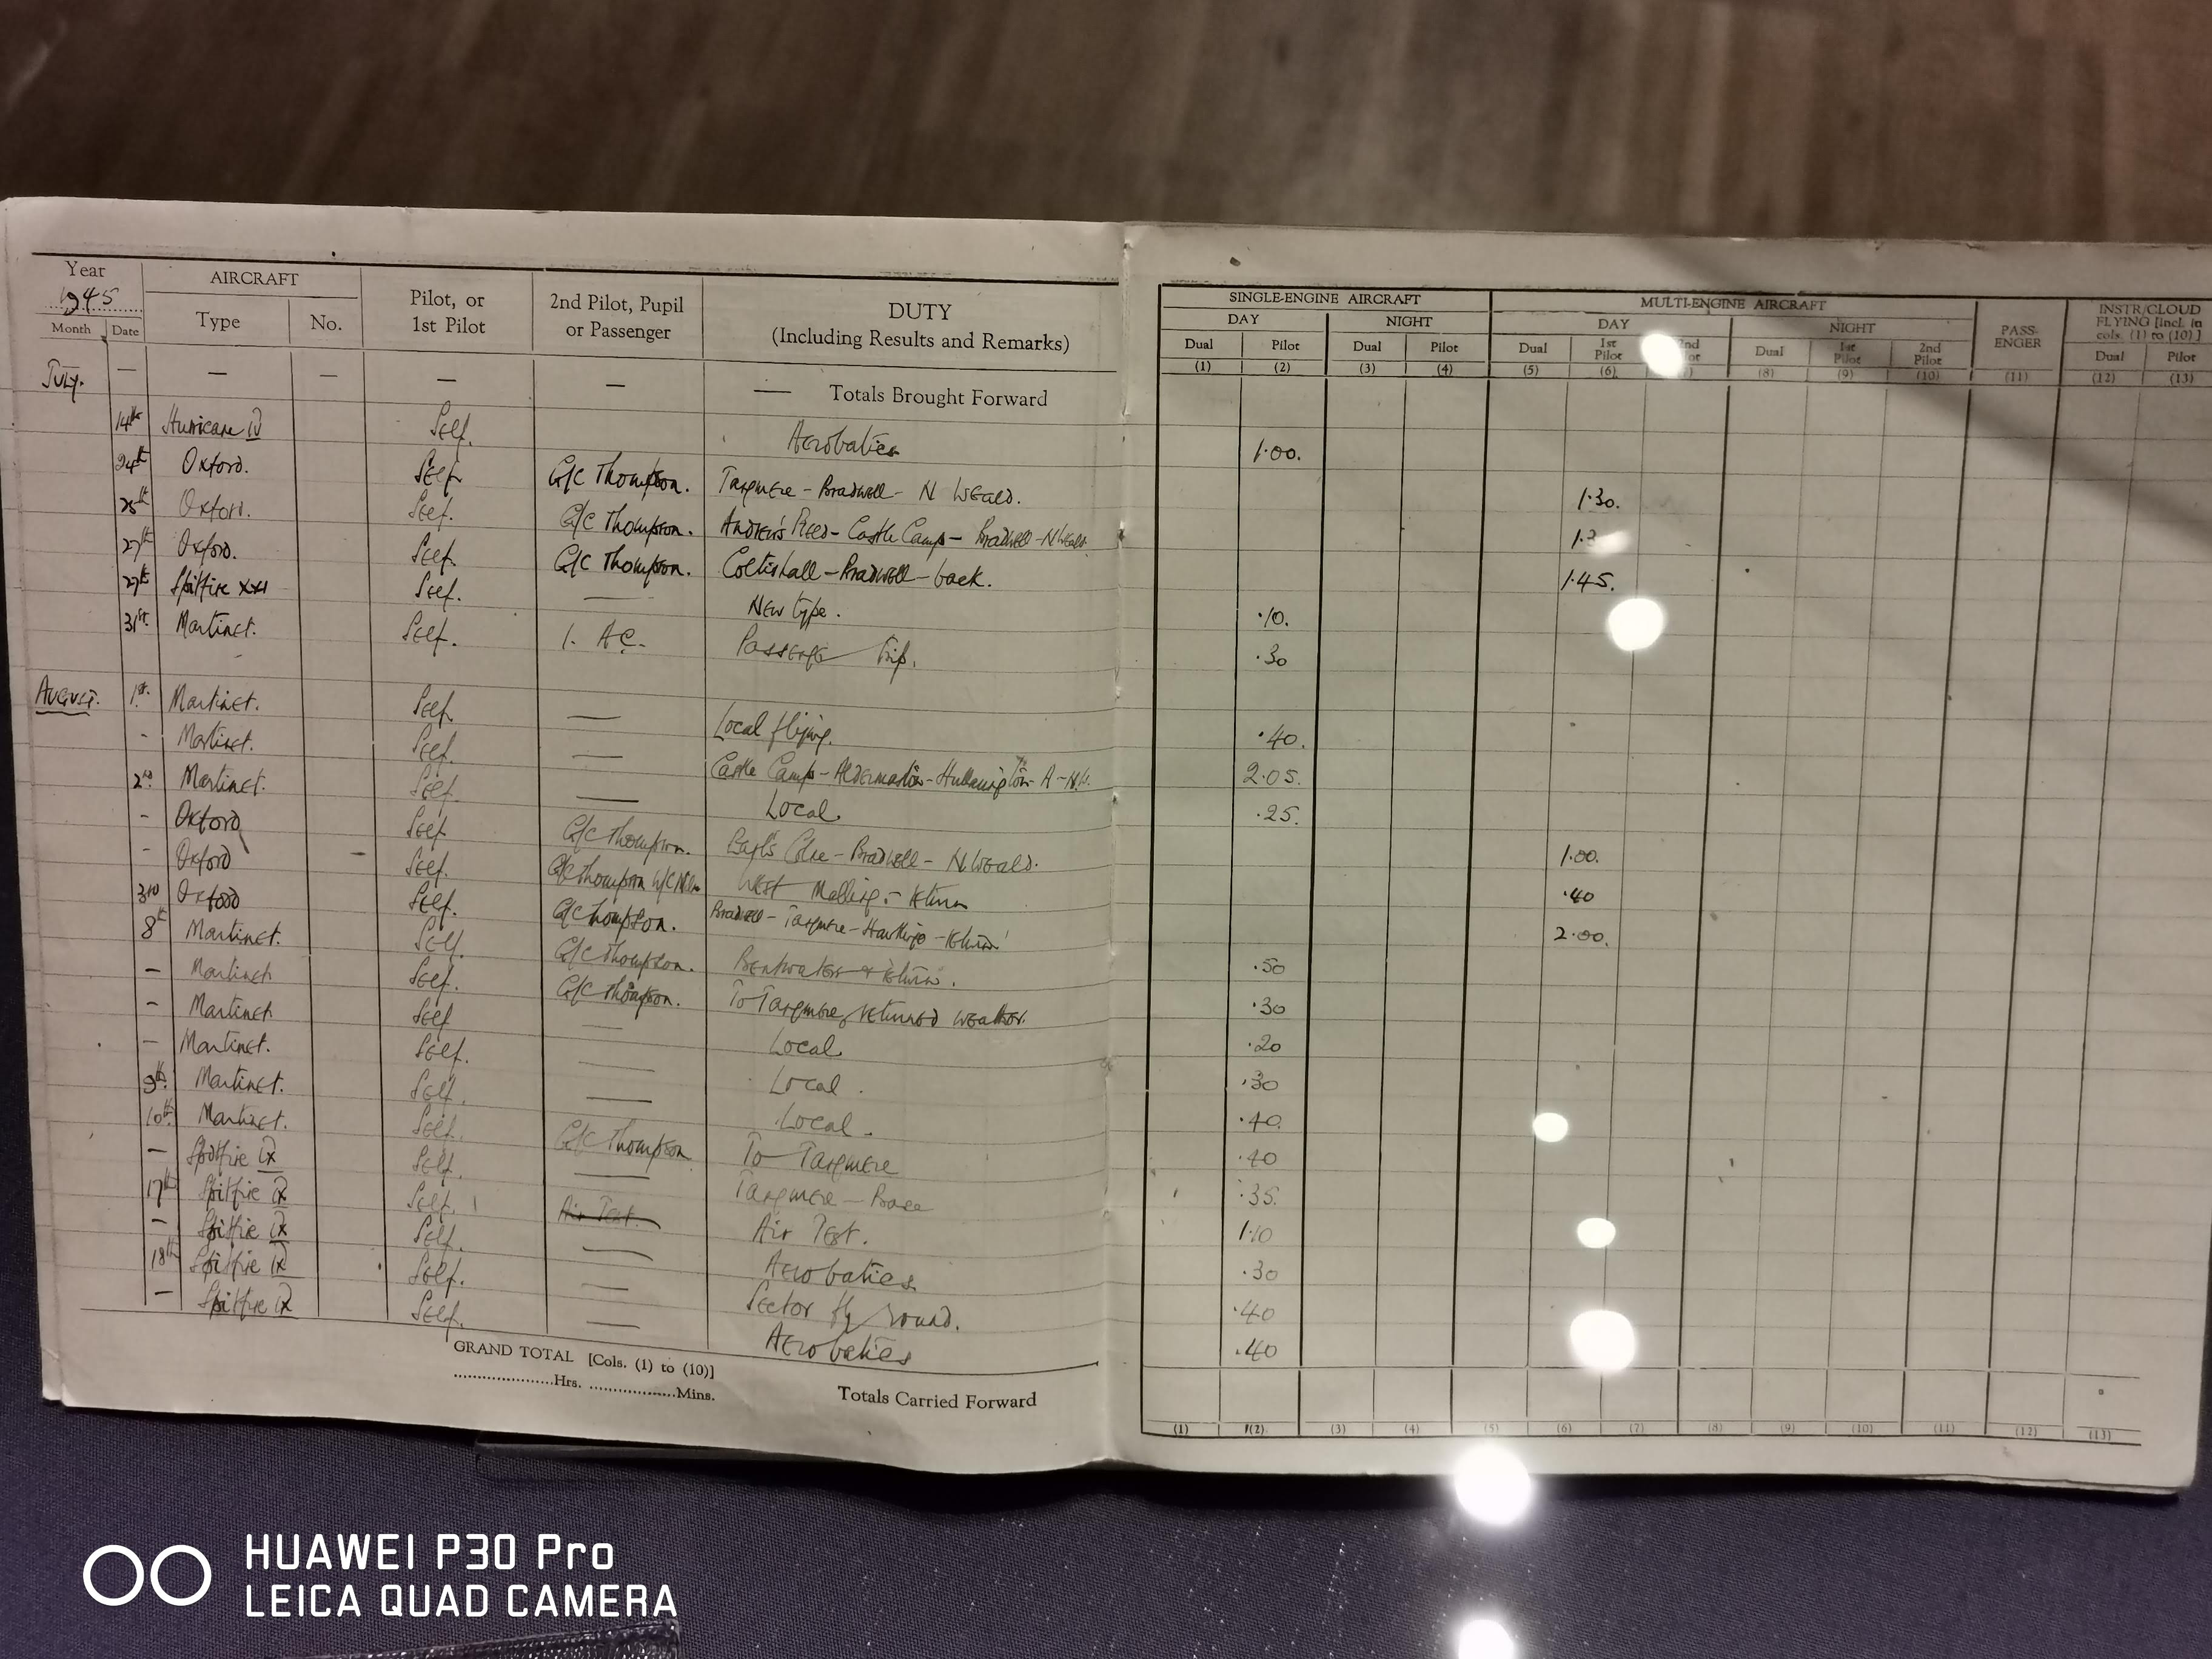 Year 1945 AIRCRAFT Pilot, or 1st Pilot 2nd Pilot, Pupil or Passenger DUTY (Including Results and Remarks)
Month Date Type No.
SINGLE-ENGINE AIRCRAFT MULTI-ENGINE AIRCRAFT PASS-ENGER INSTR/CLOUD FLYING [incl. in cols. (1) to (10)]
DAY NIGHT DAY NIGHT
Dual Pilot Dual Pilot Dual 1st Pilot 2nd Pilot Dual 1st Pilot 2nd Pilot Dual Pilot
(1) (2) (3) (4) (5) (6) (8) (9) (10) (11) (12) (13)
July. — — — — — — Totals Brought Forward
14th Hurricane IV Self. Aerobatics 1.00.
24th Oxford. Self G/C Thompson. Tangmere - Bradwell - N Weald. 1.30.
25th Oxford. Self. G/C Thompson. Andrew's Field - Castle Camp - Bradwell - N Weald.
27th Oxford. Self. G/C Thompson. Coltishall - Bradwell - back. 1.45.
27th Spitfire XXI Self. — New type. .10.
31st. Martinet. Self. 1. AC. Passenger Trip. .30
August. 1st. Martinet. Self — Local flying. .40.
- Martinet. Self. — Castle Camp - Aldermaston - 2.05.
2nd. Martinet. Self. — Local. .25.
- Oxford Self G/C Thompson. Earl's Colne - Bradwell - N Weald. 1.00.
- Oxford Self. G/C Thompson W/C West Malling - return .40
3rd Oxford Self. G/C Thompson. Bradwell - Tangmere - Hawkinge - return 2.00.
8th Martinet. Self. G/C Thompson. Bentwaters & return. .50
— Martinet Self. G/C Thompson. To Tangmere, returned weather. .30
- Martinet Self — Local. .20
— Martinet. Self. — Local. .30
9th. Martinet. Self. — Local. .40.
10th. Martinet. Self. G/C Thompson To Tangmere .40
— Spitfire IX Self. — Tangmere — Base .35.
17th Spitfire IX Self. Air Test. Air Test. 1.10
— Spitfire IX Self. — Aerobatics .30
18th Spitfire IX Self. — Sector fly round. .40
— Spitfire IX Self. — Aerobatics .40
GRAND TOTAL [Cols. (1) to (10)]
....................Hrs. ....................Mins. Totals Carried Forward
(1) (2) (3) (4) (5) (6) (7) (8) (9) (10) (11) (12) (13)
HUAWEI P30 Pro
LEICA QUAD CAMERA